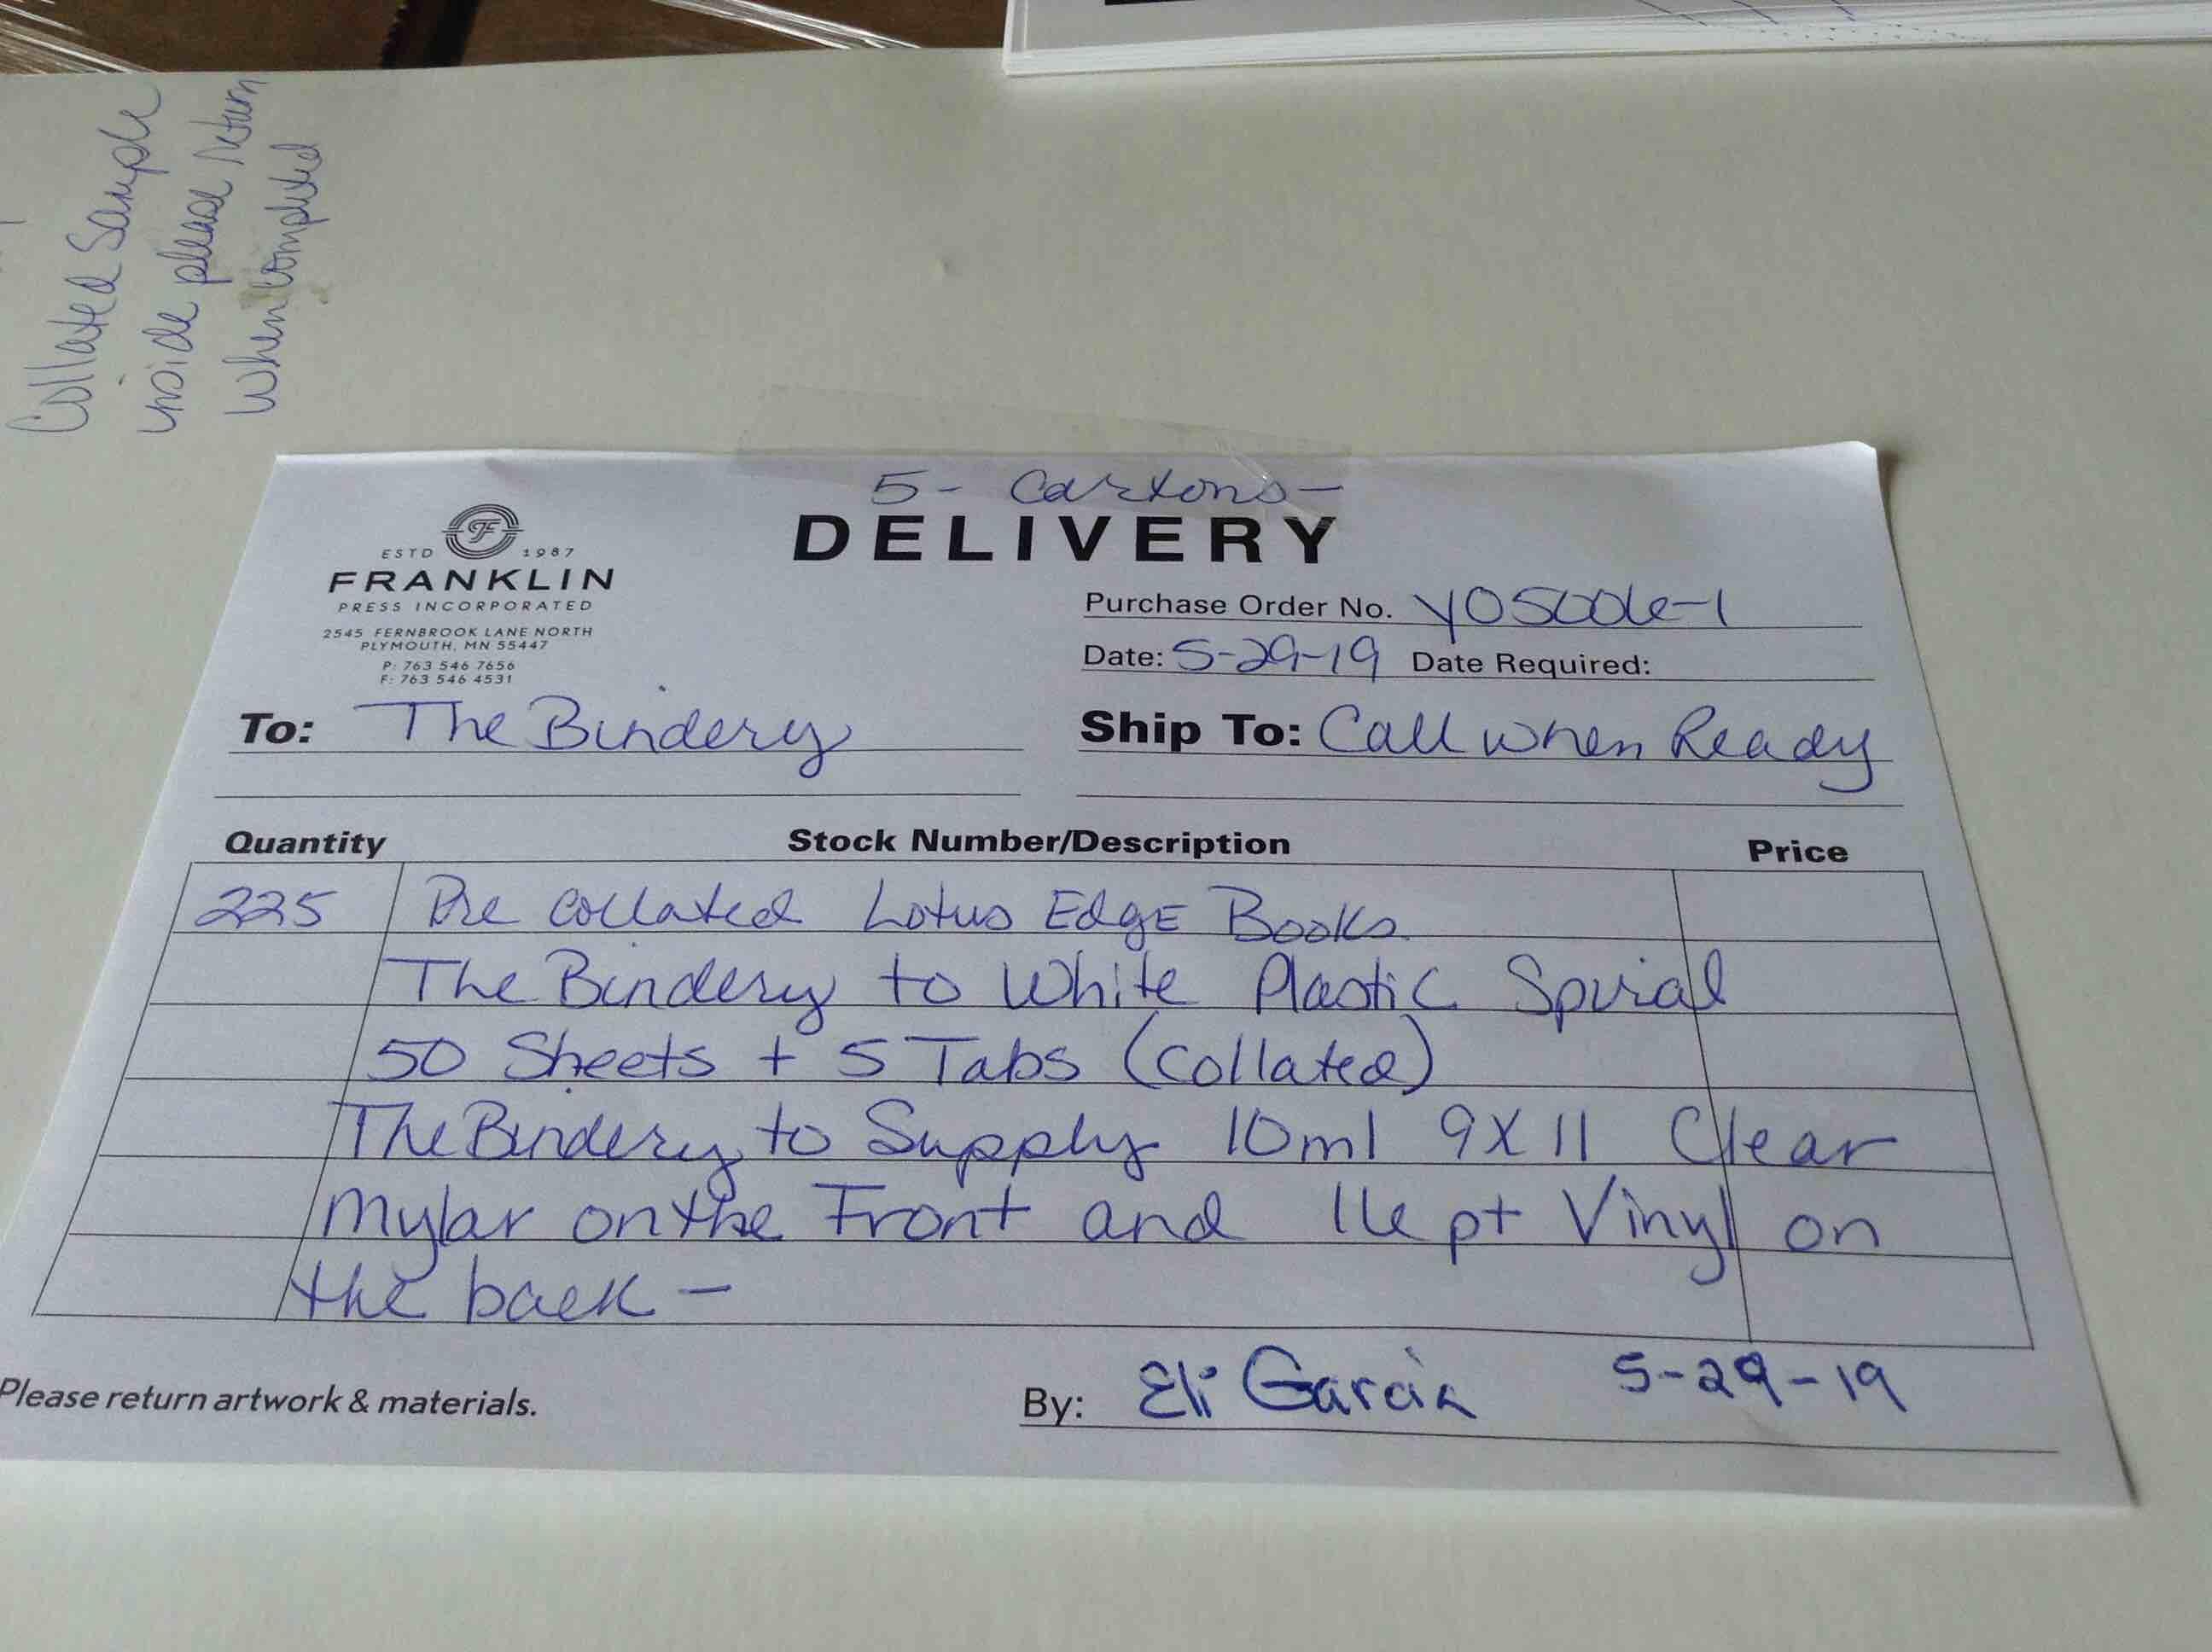 Collated Sample
inside please return
When completed
5 - Cartons -
DELIVERY
ESTD 1987
FRANKLIN
PRESS INCORPORATED
2545 FERNBROOK LANE NORTH
PLYMOUTH, MN 55447
P: 763 546 7656
F: 763 546 4531
Purchase Order No. YO5006-1
Date: 5-29-19 Date Required:
To: The Bindery
Ship To: Call when Ready
Quantity Stock Number/Description Price
225 Pre Collated Lotus Edge Books
The Bindery to White Plastic Spiral
50 Sheets + 5 Tabs (Collated)
The Bindery to Supply 10ml 9X11 Clear
Mylar on the Front and 16 pt Vinyl on
the back -
Please return artwork & materials.
By: Eli Garcia 5-29-19